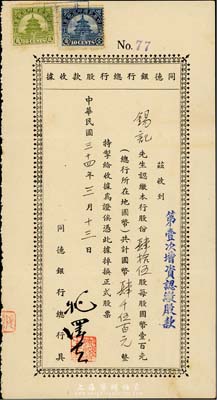 10 CENTS
10 CENTS
No. 77
同德銀行總行股款收據
茲收到
第壹次增資認繳股款
錫記
先生認繳本行股份肆拾伍股每股國幣壹百元
(總行所在地國幣)共計國幣肆千伍百元整
特掣給收據為證俟憑此據掉換正式股票
中華民國三十四年三月十三日
同德銀行總行具